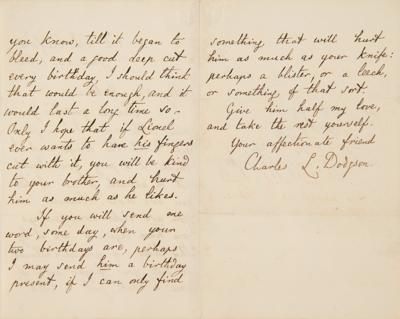 you know, till it began to
bleed, and a good deep cut
every birthday, I should think
that would be enough, and it
would last a long time so -
Only I hope that, if Lionel
ever wants to have his fingers
cut with it, you will be kind
to your brother, and hurt
him as much as he likes.
If you will send me
word, some day, when your
two birthdays are, perhaps
I may send him a birthday
present, if I can only find
something that will hurt
him as much as your knife:
perhaps a blister, or a leech,
or something of that sort.
Give him half my love,
and take the rest yourself.
Your affectionate friend
Charles L. Dodgson